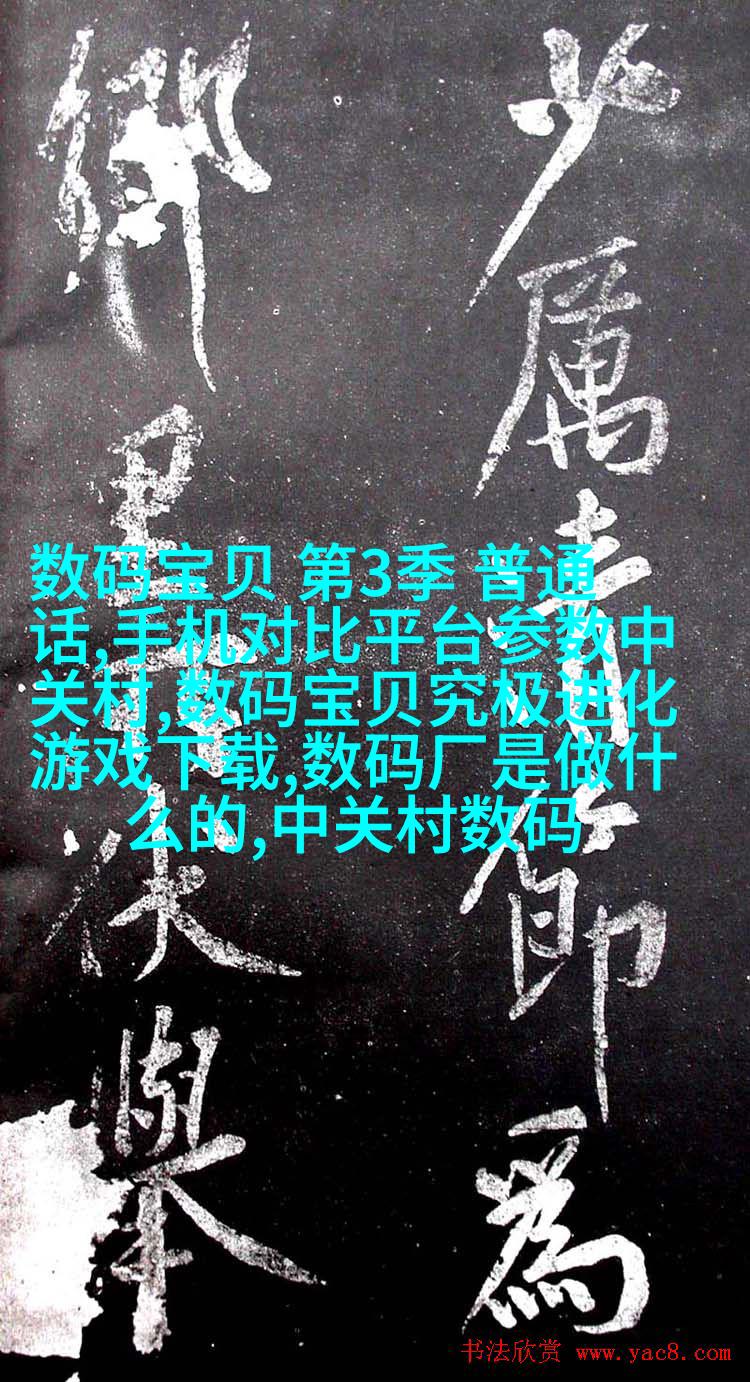 少厲清節為
鄉里伏舉
数码宝贝 第3季 普通
话,手机对比平台参数中
关村,数码宝贝究极进化
游戏下载,数码厂是做什
么的,中关村数码
书法欣赏 www.yac8.com